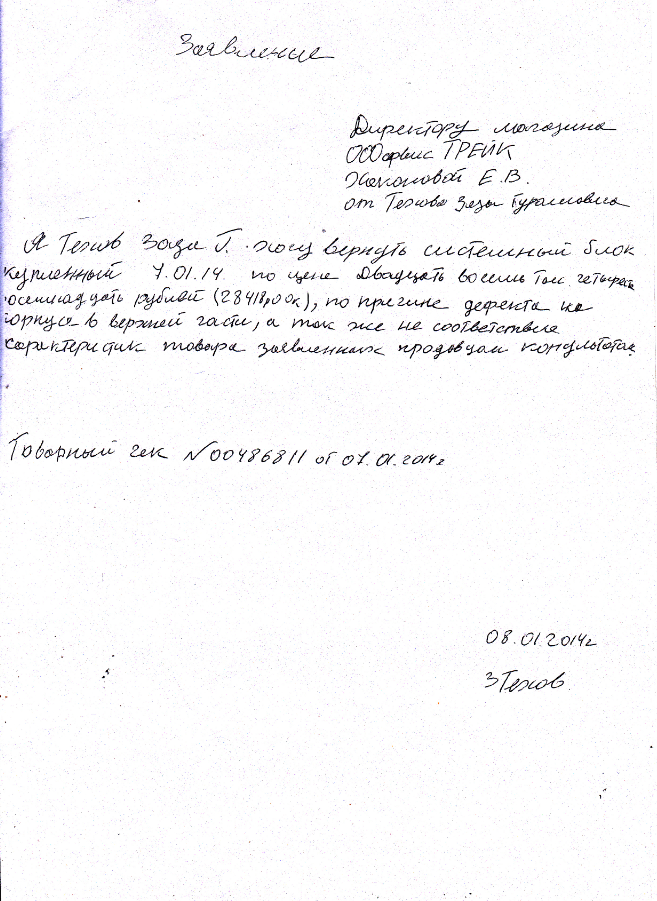 Заявление
Директору магазина
ОООрвис ТРЕЙК
Е.В.
от Техова Зазы Гурамовича
Я Техов Заза Г. хочу вернуть системный блок
купленный 7.01.14 по цене двадцать восемь тыс четырста
осемнадцать рублей (28418,00к), по причине дефекта на
корпусе в верхней части, а так же не соответствие
характеристик товара заявленных продовцом
Товарный чек N00486811 от 07.01.2014г
08.01.2014г
ЗТехов